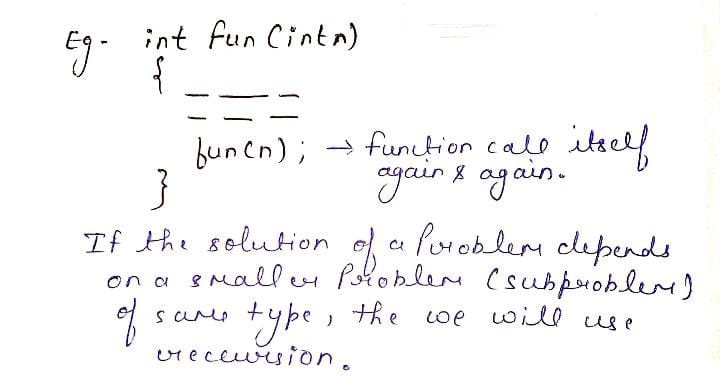 Eg- int fun (int n)
{
— — —
— — —
fun(n); → function call itself
again & again.
}
If the solution of a Problem depends
on a smaller Problem (subproblem)
of same type, the we will use
rececursion.